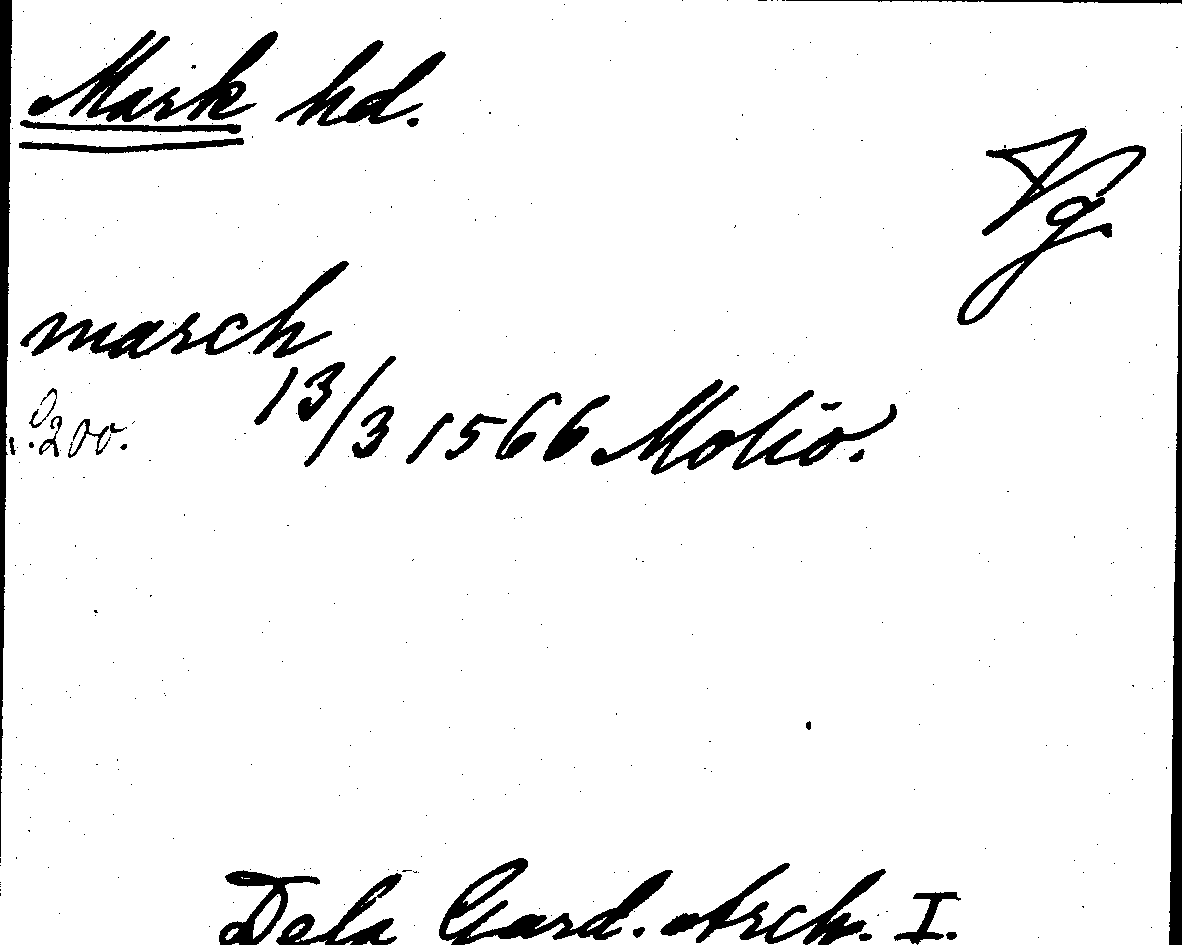 Mark hd.
Vg.
march
13/3 1566 Moliö.
s. 200.
Dela Gard. Arch. I.